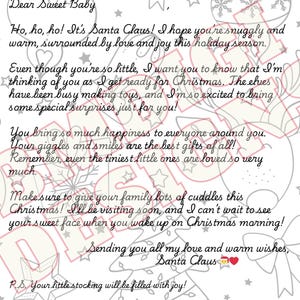 Dear Sweet Baby
'Ho, ho, ho! It's Santa Claus! I hope you're snuggly and
warm, surrounded by love and joy this holiday season.
Even though you're so little, I want you to know that I'm
thinking of you as I get ready for Christmas. The elves
have been busy making toys, and I'm so excited to bring
some special surprises just for you!
You bring so much happiness to everyone around you.
Your giggles and smiles are the best gifts of all!
Remember, even the tiniest little ones are loved so very
much.
Make sure to give your family lots of cuddles this
Christmas! I'll be visiting soon, and I can't wait to see
your sweet face when you wake up on Christmas morning!
Sending you all my love and warm wishes,
Santa Claus🎅❤️
P.S. Your little stocking will be filled with joy!